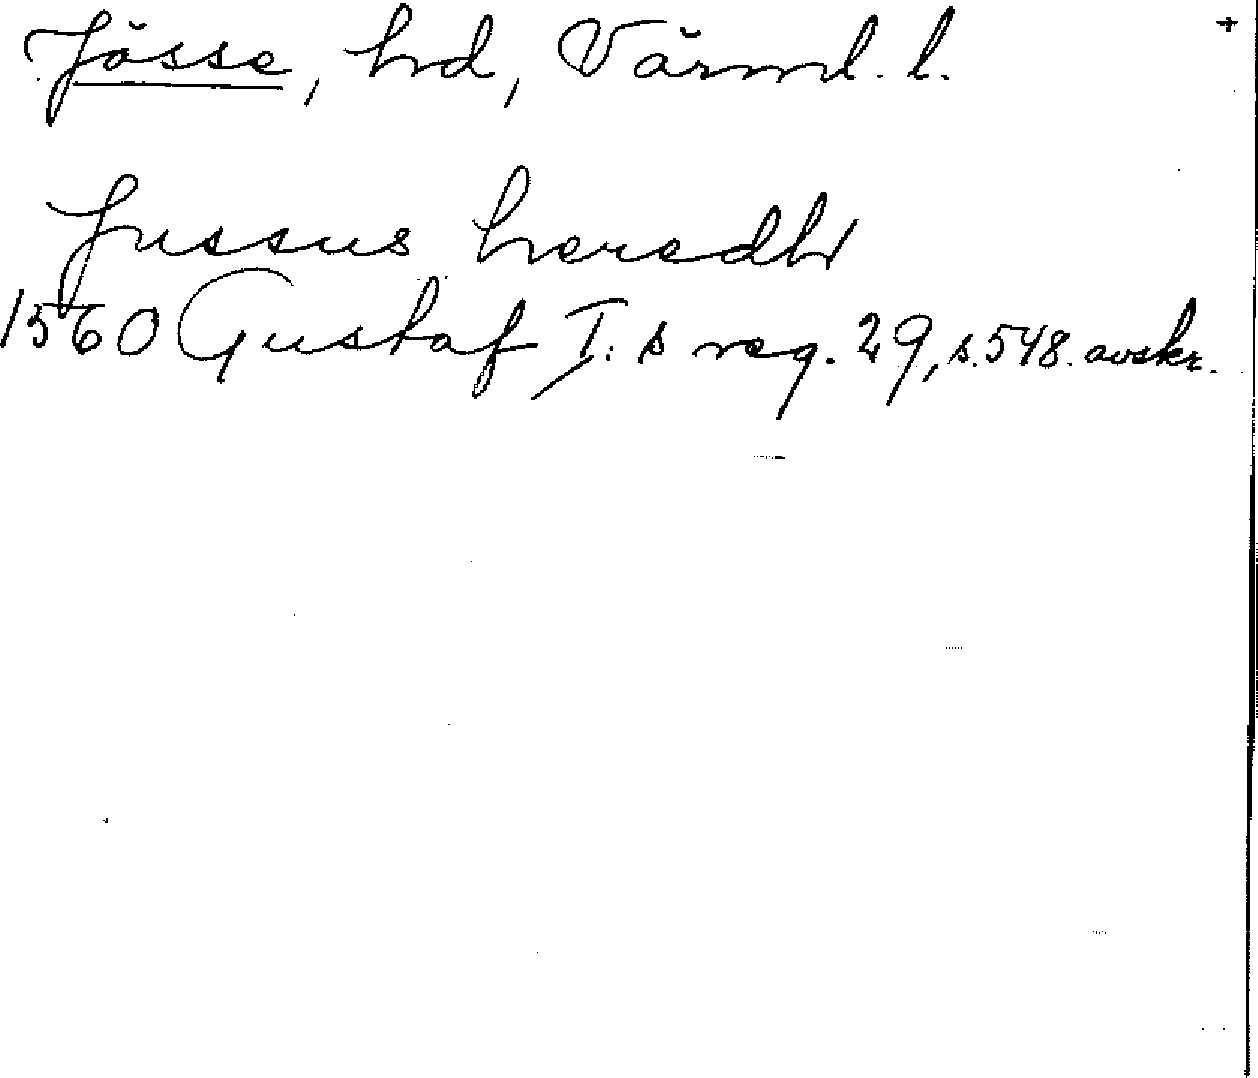 Jösse, hd, Värml. l. +
Jussus heredh
1560 Gustaf I:s reg. 29, s. 548. avskr.